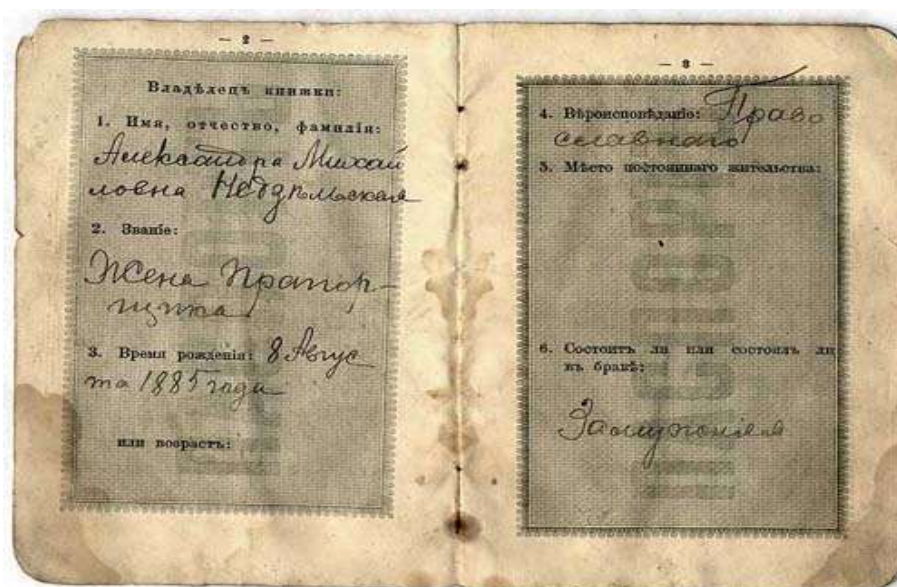 — 2 —
Владѣлецъ книжки:
1. Имя, отчество, фамилія:
Александра Михай
ловна
2. Званіе:
Жена Прапор-
щика
3. Время рожденія: 8 Авгус
та 1885 года
или возрастъ:
— 3 —
4. Вѣроисповѣданіе: Право
славнаго
5. Мѣсто постояннаго жительства:
6. Состоитъ ли или состоялъ ли
въ бракѣ: